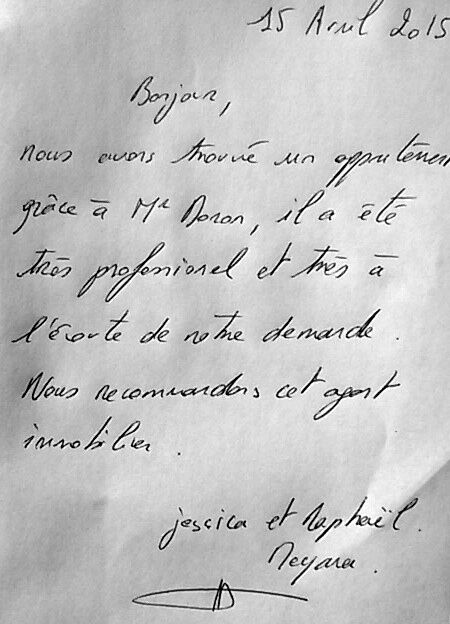 15 Avril 2015
Bonjour,
nous avons trouvé un appartement
grâce à Mr Doron, il a été
très professionel et très à
l'écoute de notre demande.
Nous recommandons cet agent
immobilier.
jessica et Raphaël.
Meyara.